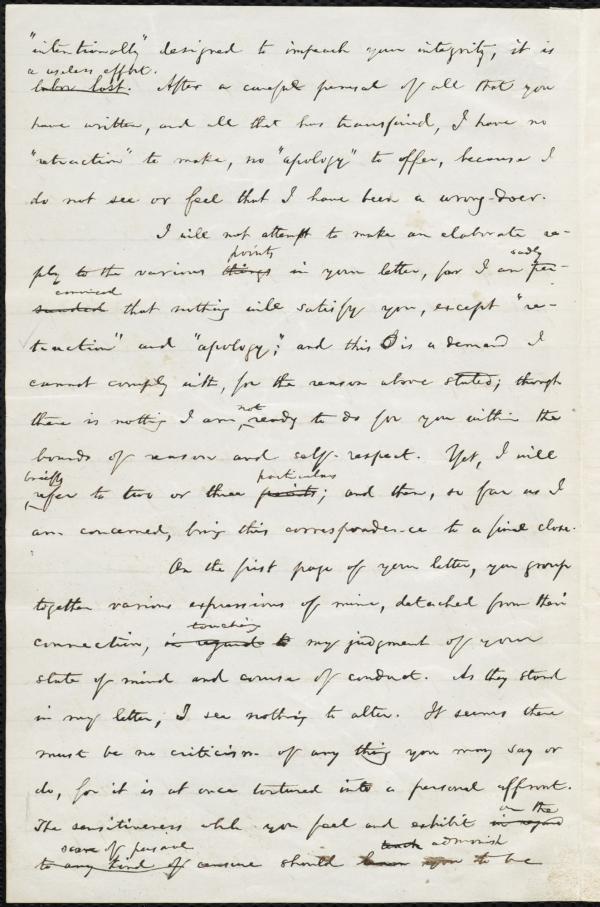 "intentionally" designed to impeach your integrity, it is
a useless effort.
labor lost. After a careful perusal of all that you
have written, and all that has transpired, I have no
"retraction" to make, no "apology" to offer, because I
do not see or feel that I have been a wrong-doer.
I will not attempt to make an elaborate re-
points sadly
ply to the various things in your letter, for I am per-
convinced
suaded that nothing will satisfy you, except "re-
traction" and "apology;" and this is a demand I
cannot comply with, for the reason above stated; though
not
there is nothing I am ready to do for you within the
bounds of reason and self-respect. Yet, I will
briefly particulars
refer to two or three points; and then, so far as I
am concerned, bring this correspondence to a final close.
On the first page of your letter, you group
together various expressions of mine, detached from their
touching
connection, in regard to my judgment of your
state of mind and course of conduct. As they stand
in my letter, I see nothing to alter. It seems there
must be no criticism of any thing you may say or
do, for it is at once tortured into a personal affront.
on the
The sensitiveness which you feel and exhibit in regard
score of personal teach admonish
to any kind of censure should you to be